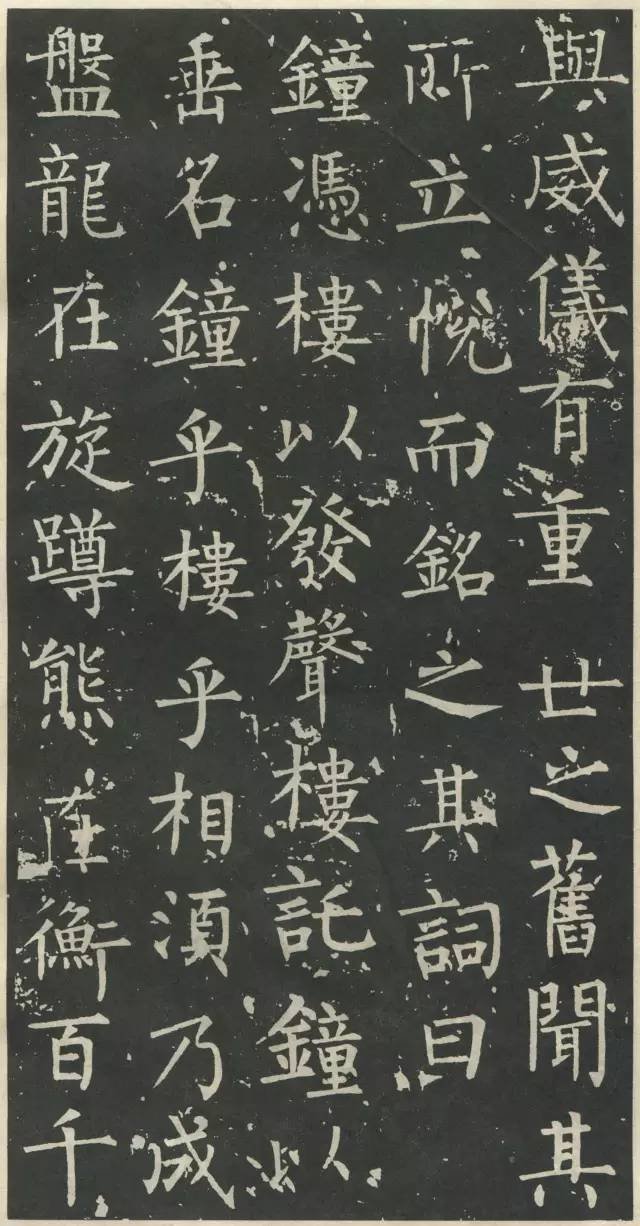 與威儀有重世之舊聞其
所立悅而銘之其詞曰
鐘憑樓以發聲樓託鐘以
垂名鐘乎樓乎相須乃成
盤龍在旋蹲熊在衡百千